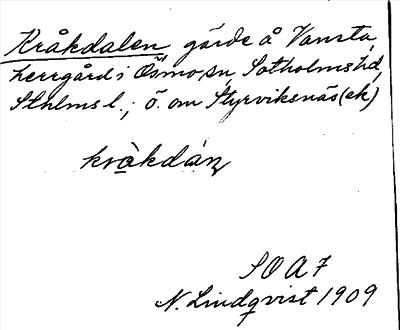 Kråkdalen, gärde å Vansta
herrgård i Ösmo sn, Sotholms hd,
Sthlms l.; ö. om Styrviksnäs (ek)
kràkdán
S O A 7
N. Lindqvist 1909